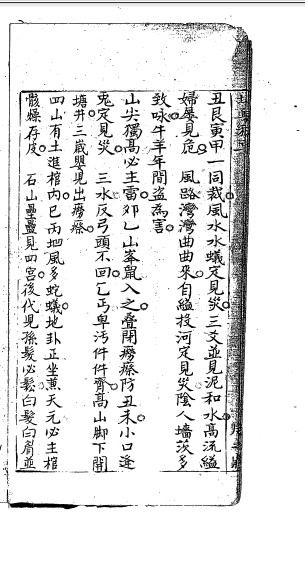 丑艮寅甲一同裁風水水蟻定見災三文並見泥和水高流縊
婦暴見危　風路灣灣曲曲來自縊投河定見災陰人墻茨多
致咏牛羊年間盗為害
山尖獨高必主雷卯乙山峯巽入之疊閉癆瘵防丑未小口逢
兎定見災　三水反弓頭不回乞丐卑汚件件齊高山脚下開
塘井三歲嬰見出癆瘵
四山有土進棺內巳丙地風多蛇蟻地卦正坐煞天元必主棺
骸燥存皮　石山壘壘見四宮後代児孫髮必鬆白髮白眉並